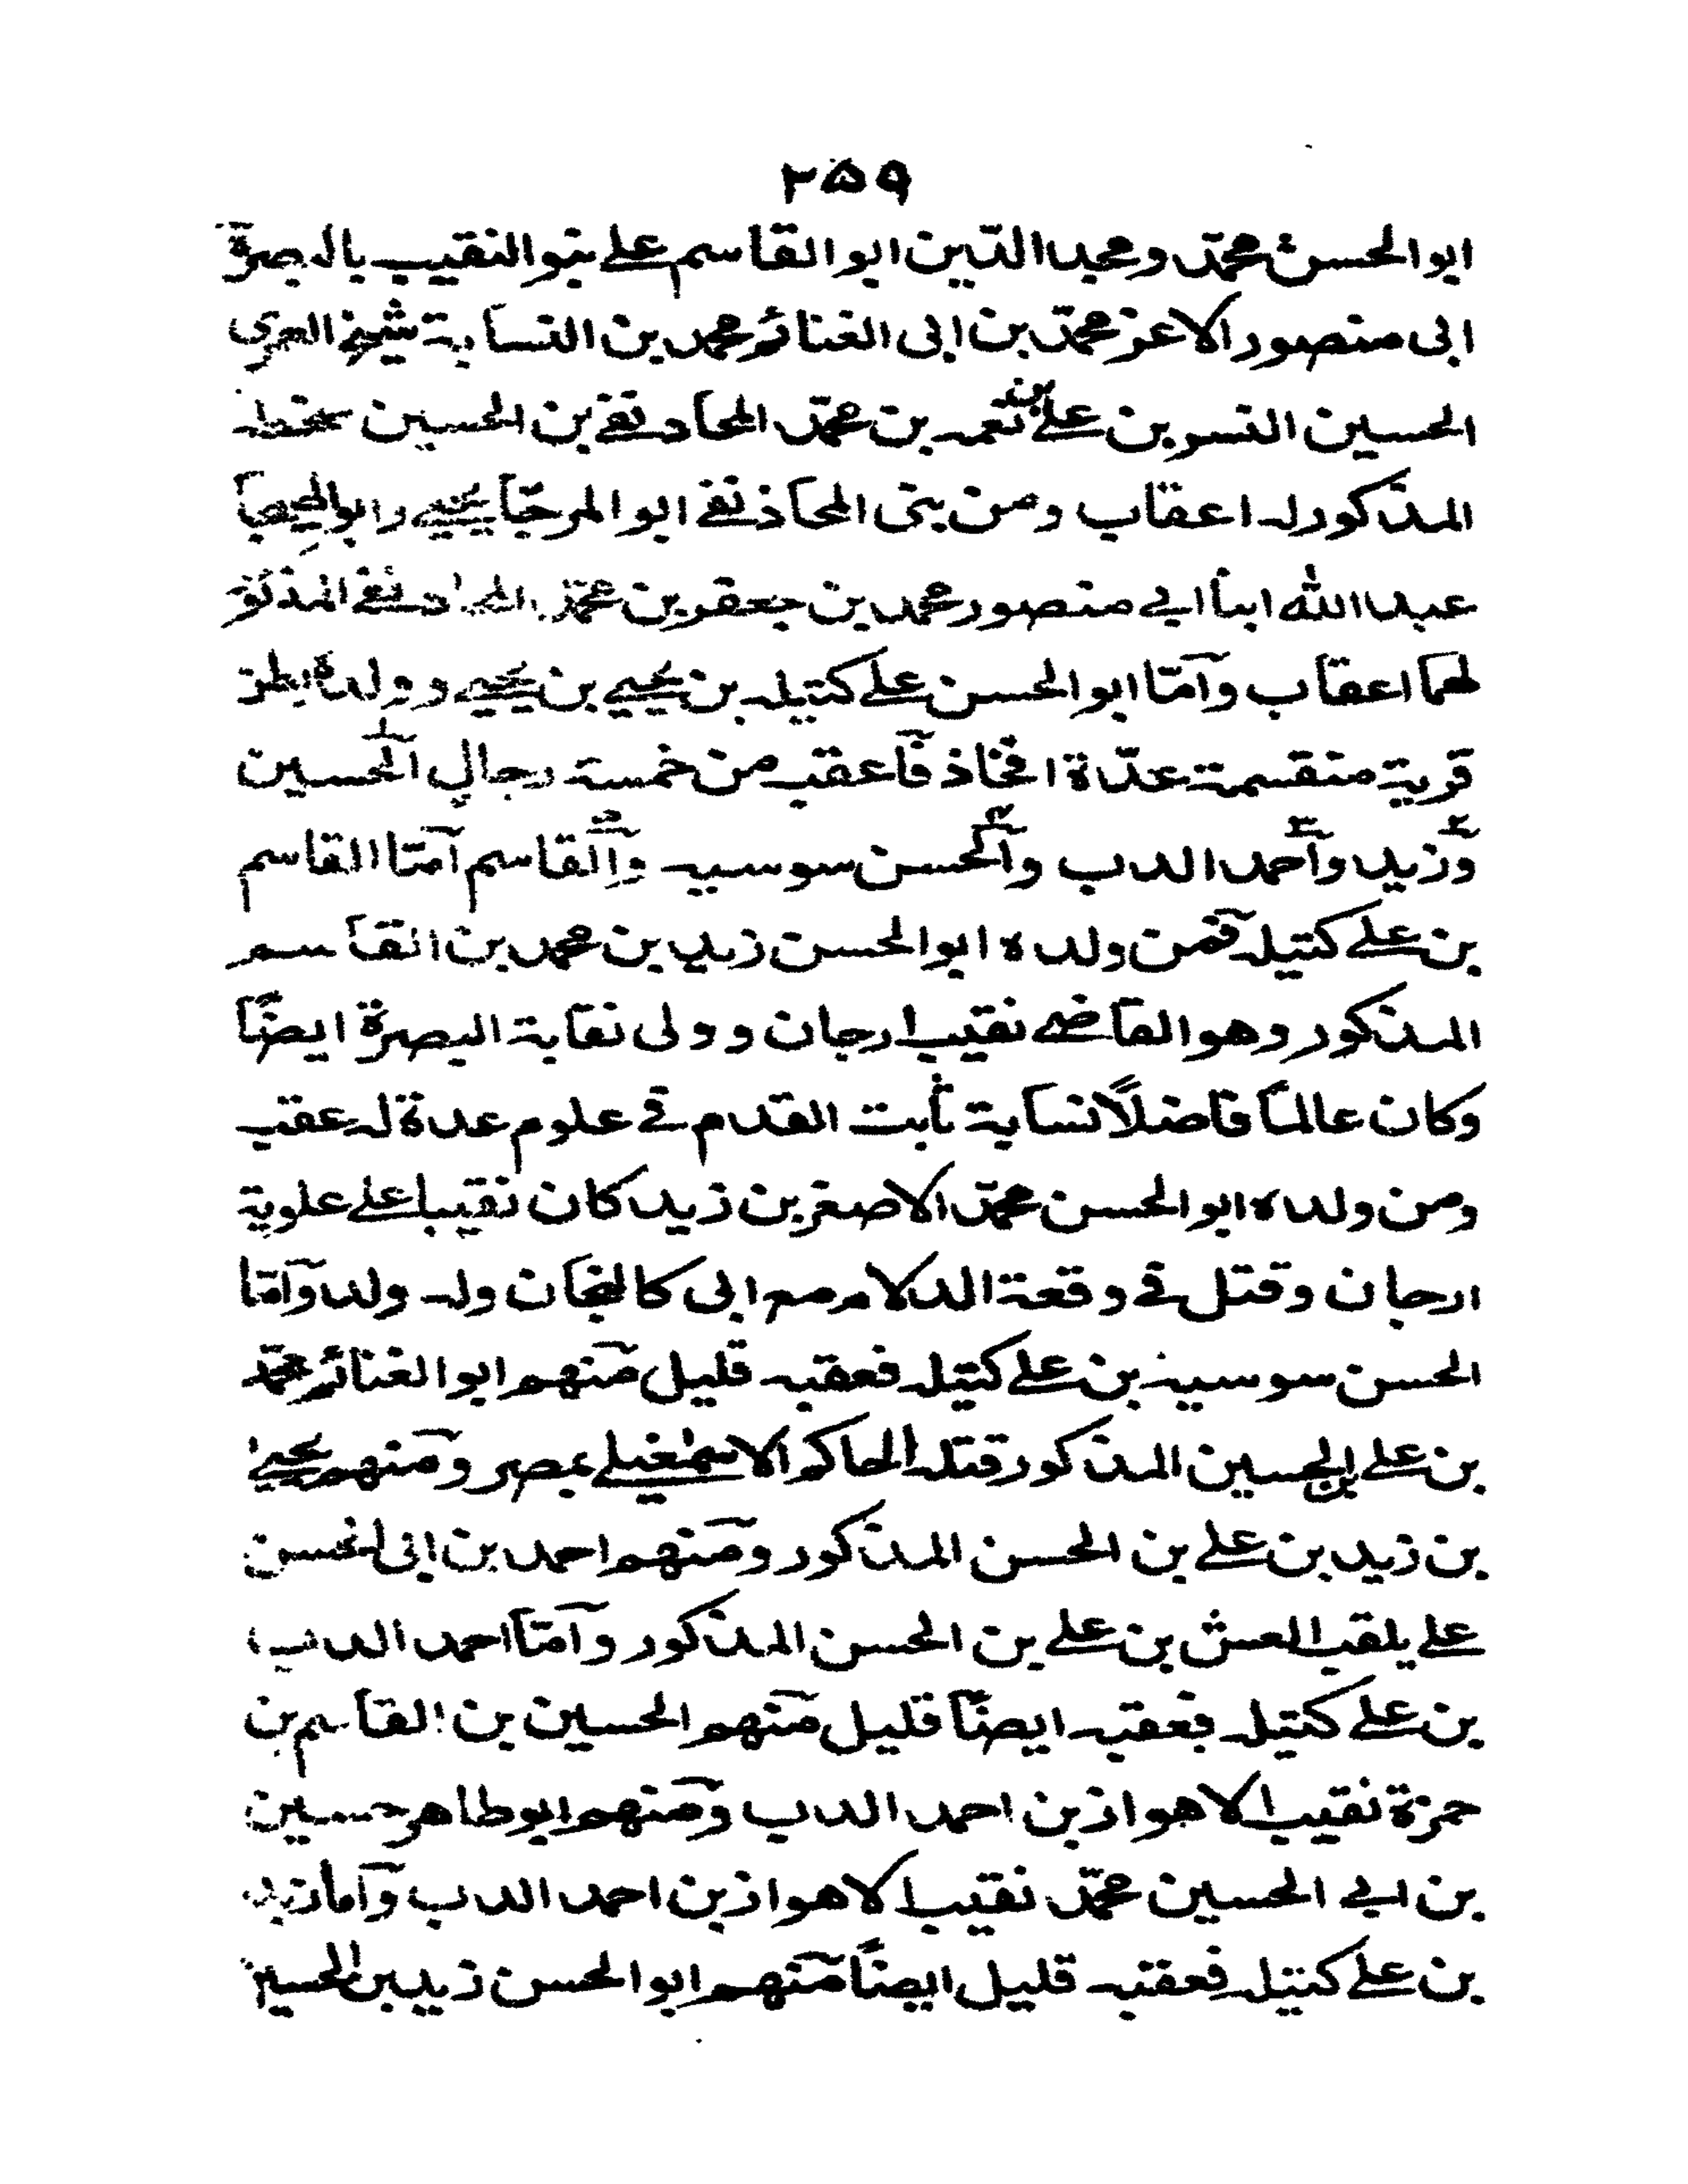 ٢٥٩
ابو الحسن محمّد ومجد الدّين ابو القاسم على بنو النقيب بالبصرة
ابى منصور الاعز محمّد بن ابى الغنائم محمد بن النسابة شيخ العمرى
الحسين النسر بن على بن نعمه بن محمّد المحاد نقى بن الحسين سخطه
المذكور له اعقاب ومن بنى المحاذ نقى ابو المرجّا يحيى وابو الهيجا
عبد الله ابنا ابى منصور محمد بن جعفر بن محمّد المحاد نقى المذكور
لهما اعقاب وآمّا ابو الحسن على كتيله بن يحيى بن يحيى وولده بطن
قرية منقسمة عدّة افخاذ فآعقب من خمسة رجال الحسين
وزيد وآحمد الدب وآلحسن سوسيه وآلقاسم آمّا القاسم
بن على كتيله فمن ولده ابو الحسن زيد بن محمد بن القاسم
المذكور وهو القاضى نقيب ارجان وولى نقابة البصرة ايضًا
وكان عالمًا فاضلًا نسابة ثابت القدم فى علوم عدة له عقب
ومن ولده ابو الحسن محمّد الاصغر بن زيد كان نقيبا على علوية
ارجان وقتل فى وقعة الدلام مع ابى كالنجان وله ولد وآمّا
الحسن سوسيه بن على كتيله فعقبه قليل منهم ابو الغنائم محمّد
بن على بن الحسين المذكور قتله الحاكم الاسمعيلى بمصر ومنهم يحيى
بن زيد بن على بن الحسن المذكور ومنهم احمد بن ابى الحسن
على يلقب العش بن على بن الحسن المذكور وآمّا احمد الدب
بن على كتيله فعقبه ايضًا قليل منهم الحسين بن القاسم بن
حمزة نقيب الاهواز بن احمد الدب ومنهم ابو طاهر حسين
بن ابى الحسين محمّد نقيب الاهواز بن احمد الدب وآما زيد
بن على كتيله فعقبه قليل ايضًا منهم ابو الحسن زيد بن الحسين